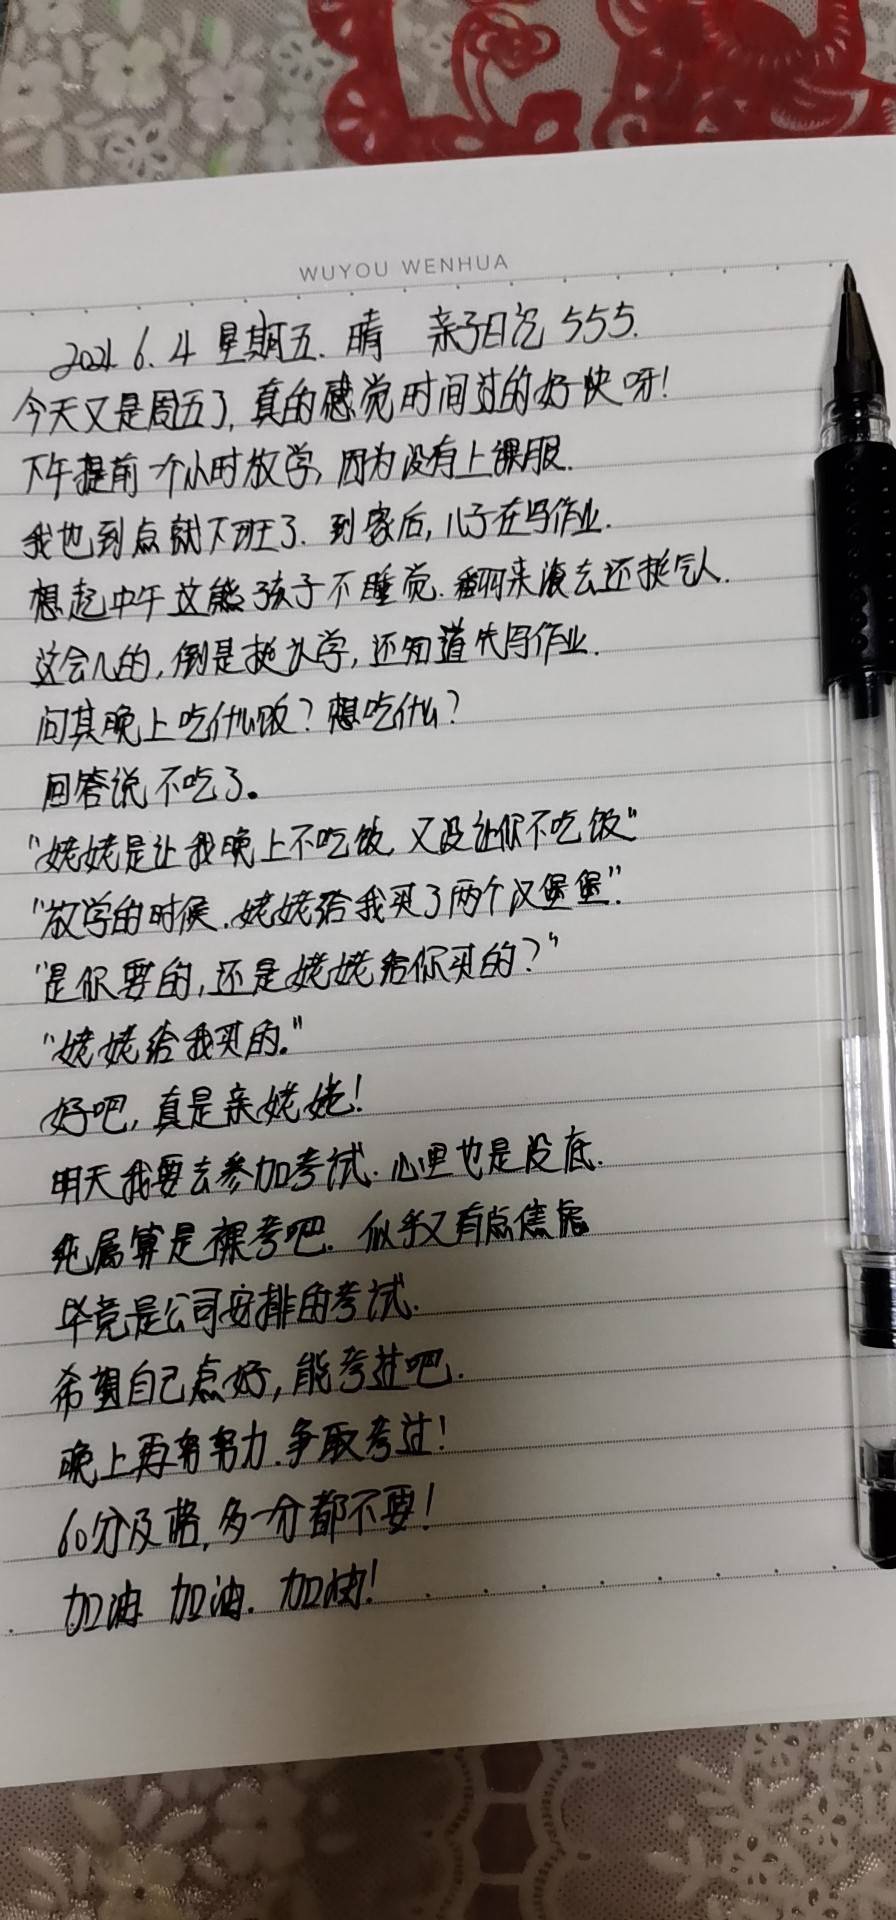 WUYOU WENHUA
2021.6.4 星期五. 晴 亲子日记 555.
今天又是周五了, 真的感觉时间过的好快呀!
下午提前一个小时放学, 因为没有上课服.
我也到点就下班了. 到家后, 儿子在写作业.
想起中午这熊孩子不睡觉. 翻来滚去还挺气人.
这会儿的, 倒是挺好学, 还知道先写作业.
问其晚上吃什么饭? 想吃什么?
回答说不吃了。
"姥姥是让我晚上不吃饭, 又没让你不吃饭"
"放学的时候. 姥姥给我买了两个汉堡堡".
"是你要的, 还是姥姥给你买的?"
"姥姥给我买的."
好吧, 真是亲姥姥!
明天我要去参加考试. 心里也是没底.
纯属算是裸考吧. 似乎又有点焦虑
毕竟是公司安排的考试.
希望自己点好, 能考过吧.
晚上再努努力. 争取考过!
60分及格, 多一分都不要!
加油 加油. 加油!